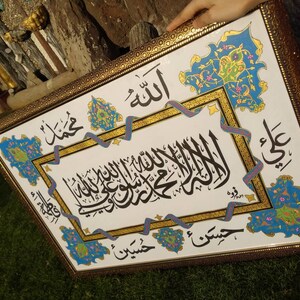 الله
محمد
علي
لا اله الا الله محمد رسول الله علي ولي الله
فاطمة
حسن
حسين